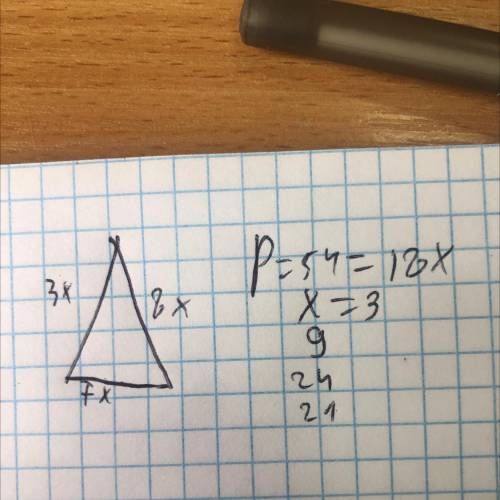 3x
8x
7x
P=54=18x
x=3
9
24
21